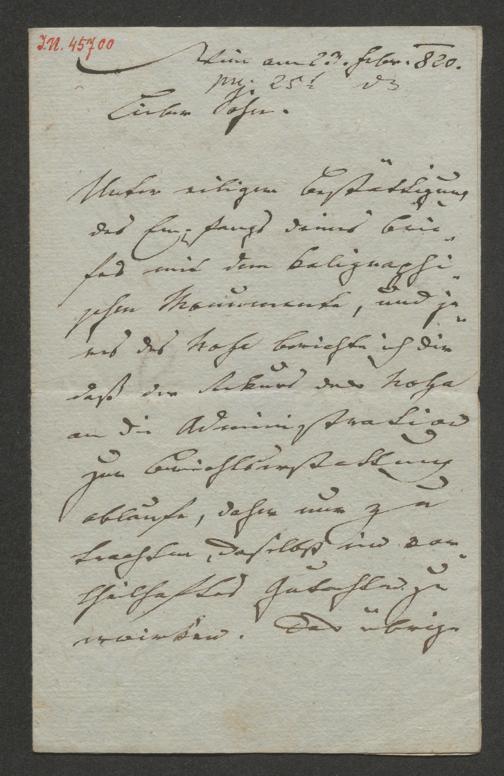 I.N. 45700
Wien am 23. Febr. 820.
25
Lieber Sohn.
Unter eiligem Bestättigung
des Empfangs deines Brie-
fes mit dem kaligraphi-
schen Monumente, und je-
nes des Hohe berichte ich dir
daß der Rekurs des Hohe
an die Administration
zur Berichtserstattung
ablaufe, daher nur zu
trachten, daselbst ein vor-
theilhaftes Gutachten zu
wirken. Das übrige